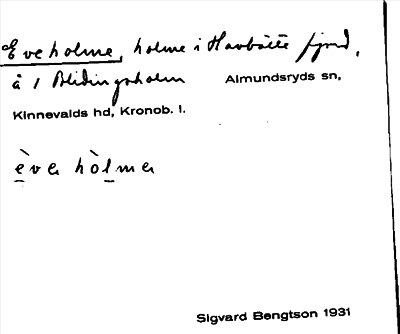 Eveholme, holme i Havbälte fjord,
å 1 Blidingsholm Almundsryds sn,
Kinnevalds hd, Kronob. l.
èva hòlma
Sigvard Bengtson 1931